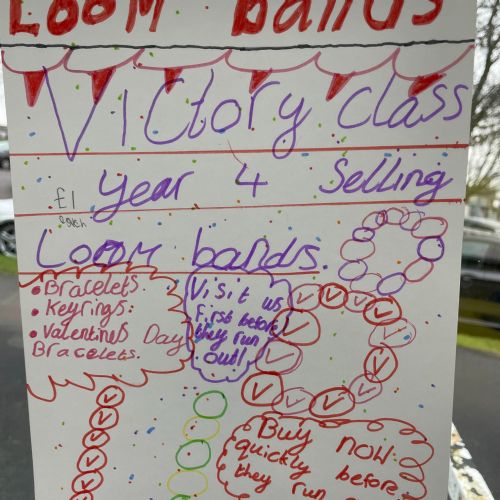 LOOM bands
Victory class
£1 each
Year 4 Selling
Loom bands.
• Bracelets.
• Keyrings.
• Valentines Day
Bracelets.
Visit us
First before
they run
out!
Buy now
quickly before
they run